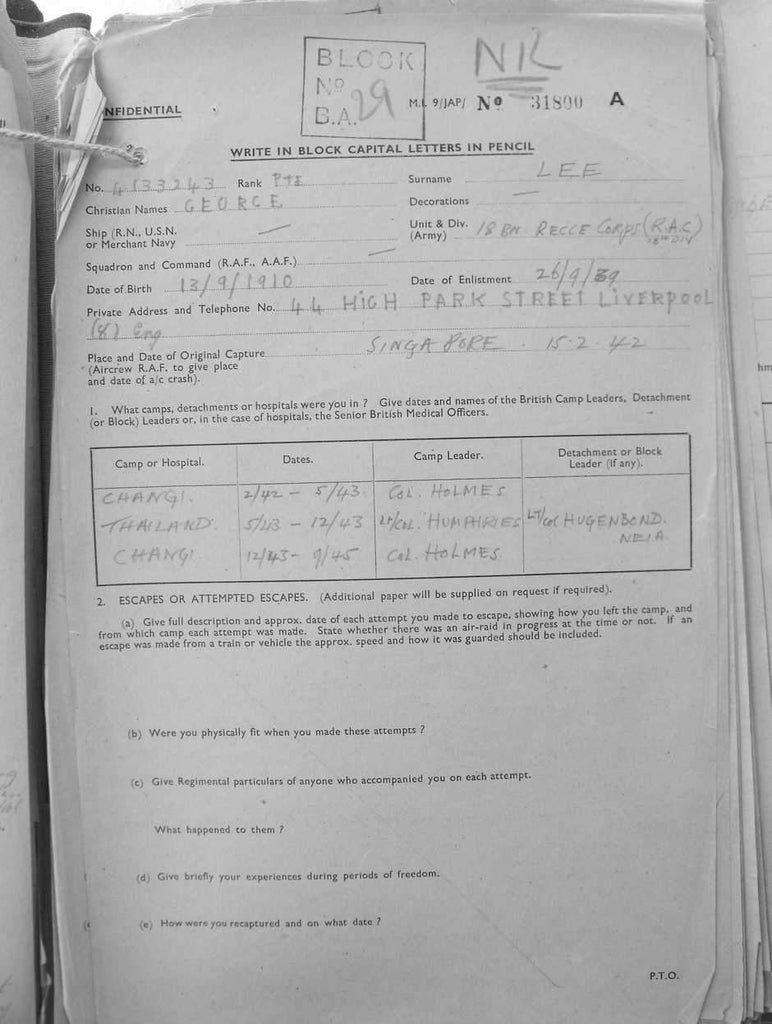 BLOCK
Nº
B.A. 29
NIL
NFIDENTIAL
M.I. 9/JAP/ Nº 31800 A
WRITE IN BLOCK CAPITAL LETTERS IN PENCIL
No. 4133243 Rank PTE
Surname LEE
Christian Names GEORGE
Decorations —
Ship (R.N., U.S.N. or Merchant Navy —
Unit & Div. (Army) 18 BN RECCE CORPS (R.A.C) 18TH DIV
Squadron and Command (R.A.F., A.A.F.) —
Date of Birth 13/9/1910
Date of Enlistment 26/9/39
Private Address and Telephone No. 44 HIGH PARK STREET LIVERPOOL
(8) Eng
Place and Date of Original Capture SINGAPORE . 15-2-42
(Aircrew R.A.F. to give place
and date of a/c crash).
1. What camps, detachments or hospitals were you in ? Give dates and names of the British Camp Leaders, Detachment
(or Block) Leaders or, in the case of hospitals, the Senior British Medical Officers.
Camp or Hospital. Dates. Camp Leader. Detachment or Block Leader (if any).
CHANGI. 2/42 – 5/43. COL. HOLMES
THAILAND. 5/43 – 12/43 LT/COL. HUMPHRIES LT/COL HUGENBOND. NEIA.
CHANGI 12/43 – 9/45 COL. HOLMES
2. ESCAPES OR ATTEMPTED ESCAPES. (Additional paper will be supplied on request if required).
(a) Give full description and approx. date of each attempt you made to escape, showing how you left the camp, and
from which camp each attempt was made. State whether there was an air-raid in progress at the time or not. If an
escape was made from a train or vehicle the approx. speed and how it was guarded should be included.
(b) Were you physically fit when you made these attempts ?
(c) Give Regimental particulars of anyone who accompanied you on each attempt.
What happened to them ?
(d) Give briefly your experiences during periods of freedom.
(e) How were you recaptured and on what date ?
P.T.O.